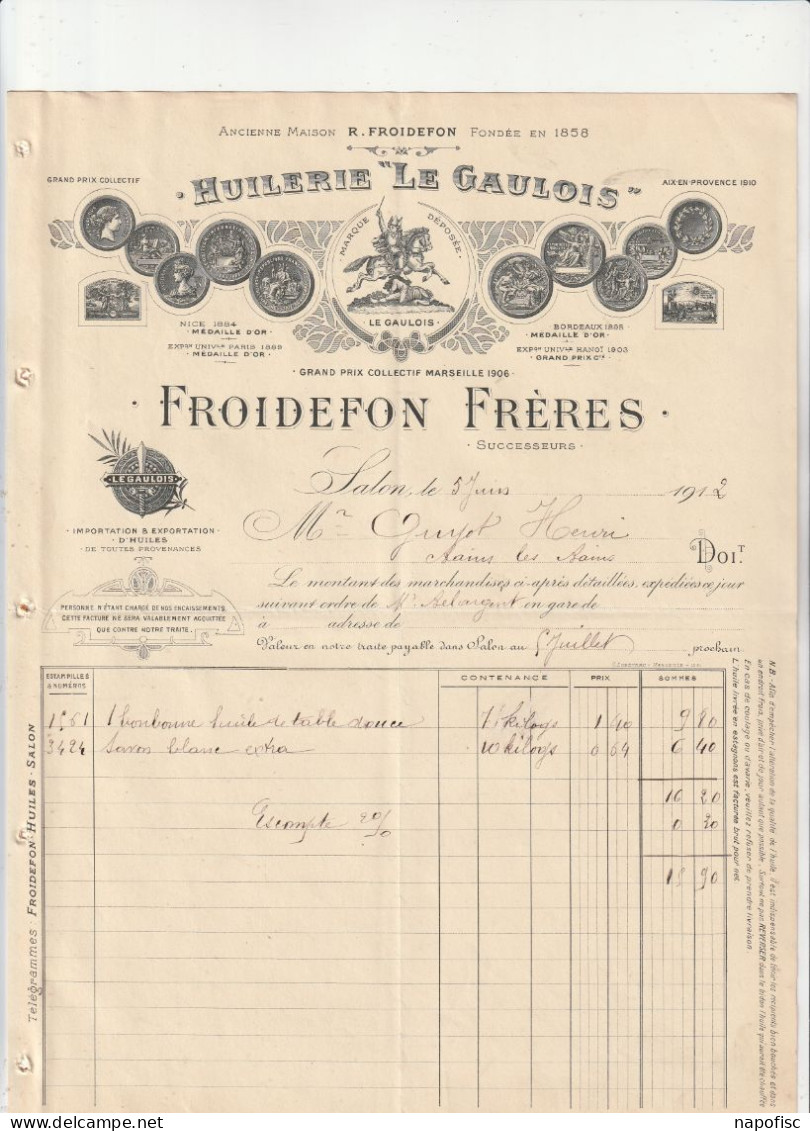 Ancienne Maison R. FROIDEFON Fondée en 1858
GRAND PRIX COLLECTIF
HUILERIE "LE GAULOIS"
AIX-EN-PROVENCE 1910
MARQUE DÉPOSÉE
LE GAULOIS
NICE 1884
MÉDAILLE D'OR
EXPon UNIVle PARIS 1889
MÉDAILLE D'OR
BORDEAUX 1895
MÉDAILLE D'OR
EXPon UNIVle HANOÏ 1903
GRAND PRIX Ctf
GRAND PRIX COLLECTIF MARSEILLE 1906
FROIDEFON FRÈRES
SUCCESSEURS
LE GAULOIS
Salon, le 5 Juin 1912
IMPORTATION & EXPORTATION
D'HUILES
DE TOUTES PROVENANCES
Mr Guyot Henri
les Bains
DOIT
Le montant des marchandises ci-après détaillées, expédiées ce jour
suivant ordre de Mr en gare de
à adresse de
Valeur en notre traite payable dans Salon au 5 Juillet prochain
PERSONNE N'ÉTANT CHARGÉ DE NOS ENCAISSEMENTS
CETTE FACTURE NE SERA VALABLEMENT ACQUITTÉE
QUE CONTRE NOTRE TRAITE
ESTAMPILLES & NUMÉROS CONTENANCE PRIX SOMMES
1561 1 bonbonne huile de table douce 7 kilogs 1 40 9 80
3424 Savon blanc extra 10 kilogs 0 64 6 40
16 20
Escompte 2% 0 30
15 90
Télégrammes: FROIDEFON-HUILES-SALON
N.B.- Afin d'empêcher l'altération de la qualité de l'huile, il est indispensable de tenir les récipients bien bouchés et dans
un endroit frais, privé d'air et de jour autant que possible. Surtout ne pas REVERSER dans le bidon l'huile qui aurait été chauffée
En cas de coulage ou d'avarie, veuillez refuser de prendre livraison.
L'huile livrée en estagnons est facturée brut pour net.
delcampe.net
napofisc